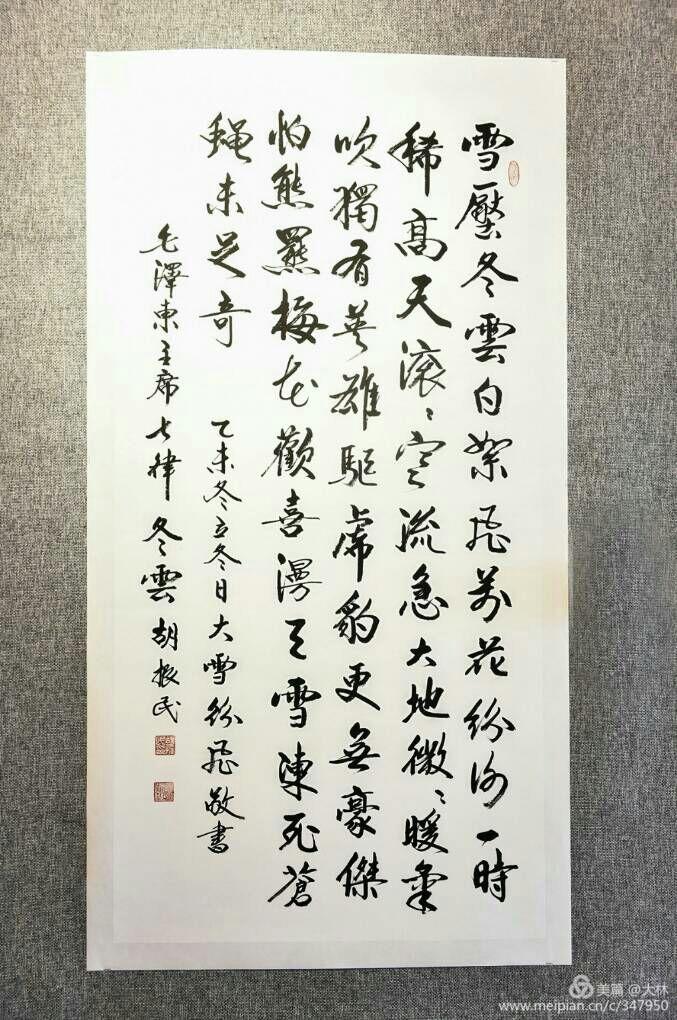 雪壓冬雲白絮飛萬花紛謝一時
稀高天滾〻寒流急大地微〻暖氣
吹獨有英雄驅虎豹更無豪傑
怕熊羆梅花歡喜漫天雪凍死蒼
蠅未足奇
乙未冬立冬日大雪紛飛敬書
毛澤東主席七律冬雲胡振民
美篇 @大林
www.meipian.cn/c/347950